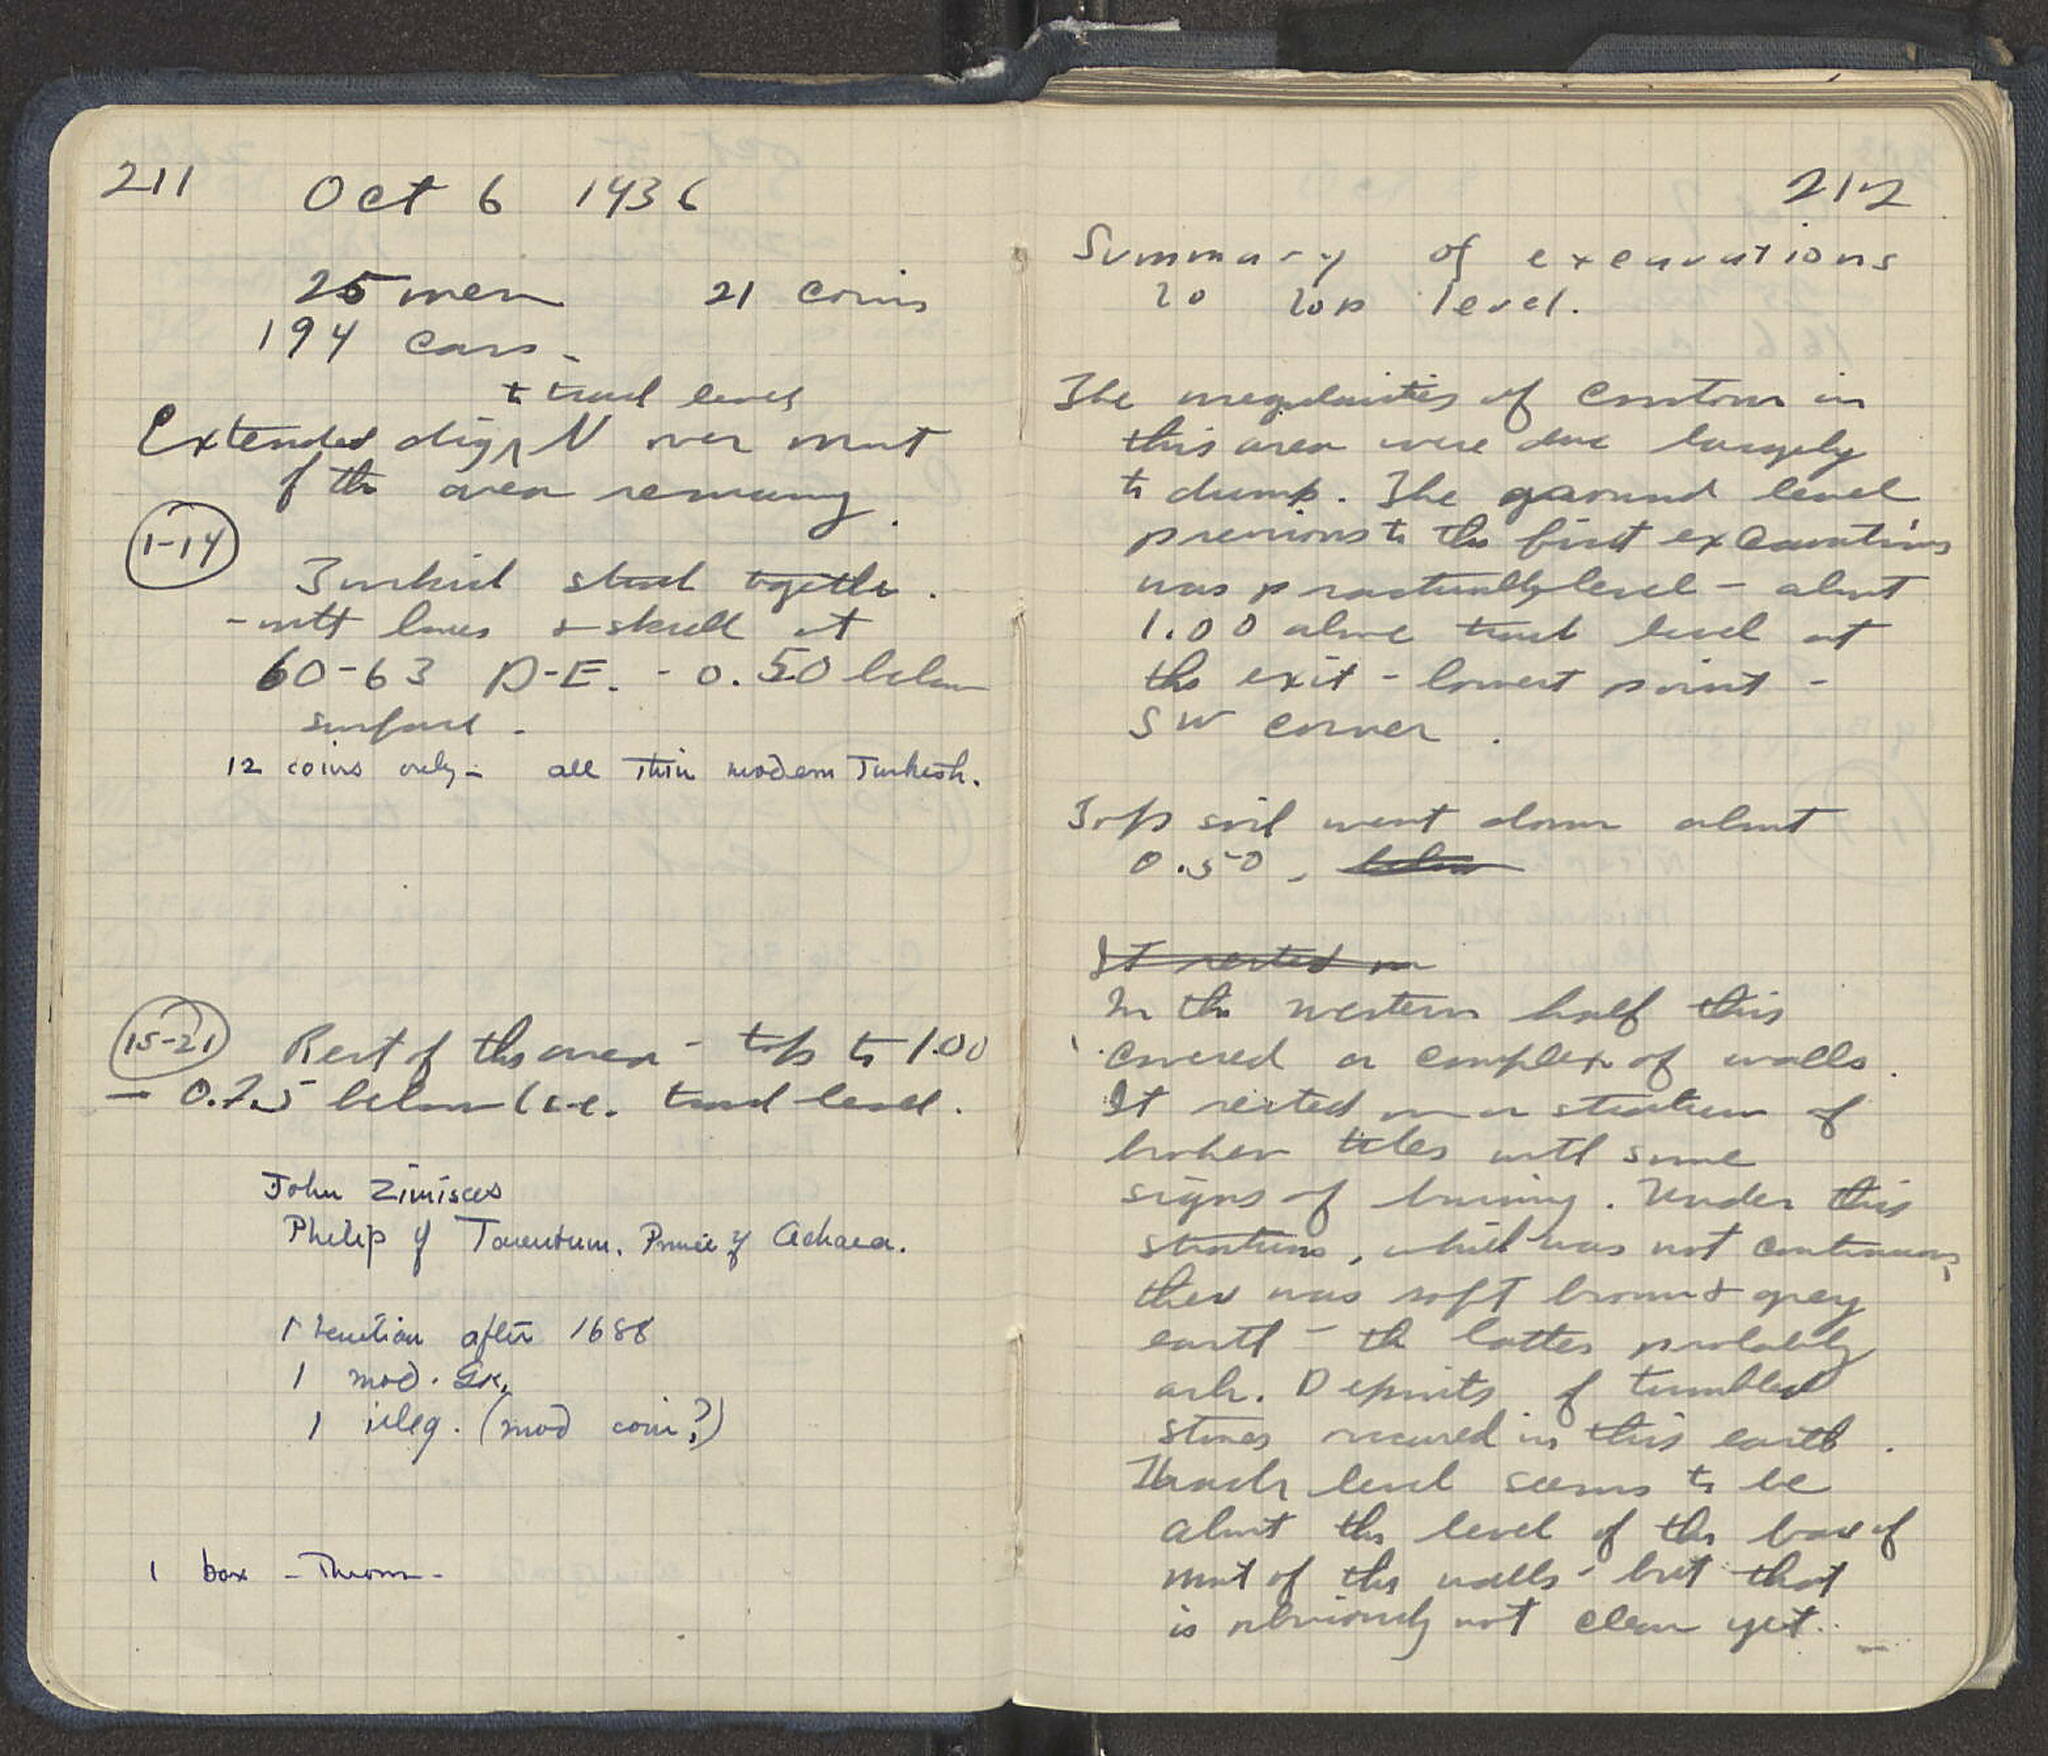 211
Oct 6 1936
25 men 21 coins
194 cars -
to track level
Extended dig N over most
of the area remaining.
1-14
Turkish stuck together.
- with bones & skull at
60-63 D-E. - 0.50 below
surface -
12 coins only - all thin modern Turkish.
15-21
Rest of this area - top to 1.00
- 0.75 below (i.e. track level.
John Zimisces
Philip of Tarentum. Prince of Achaea.
1 Venetian after 1688
1 mod. Gk.
1 illeg. (mod coin?)
1 box -
212
Summary of excavations
to top level.
The irregularities of contour in
this area were due largely
to dump. The ground level
previous to the first excavations
was practically level - about
1.00 above track level at
the exit - lowest point -
SW corner.
Top soil went down about
0.50. below
It rested on
In the western half this
covered a complex of walls.
It rested on a stratum of
broken tiles with some
signs of burning. Under this
stratum, which was not continuous,
there was soft brown & grey
earth - the latter probably
ash. Deposits of tumbled
stones occured in this earth.
Track level seems to be
about the level of the base of
most of the walls - but that
is obviously not clear yet. -